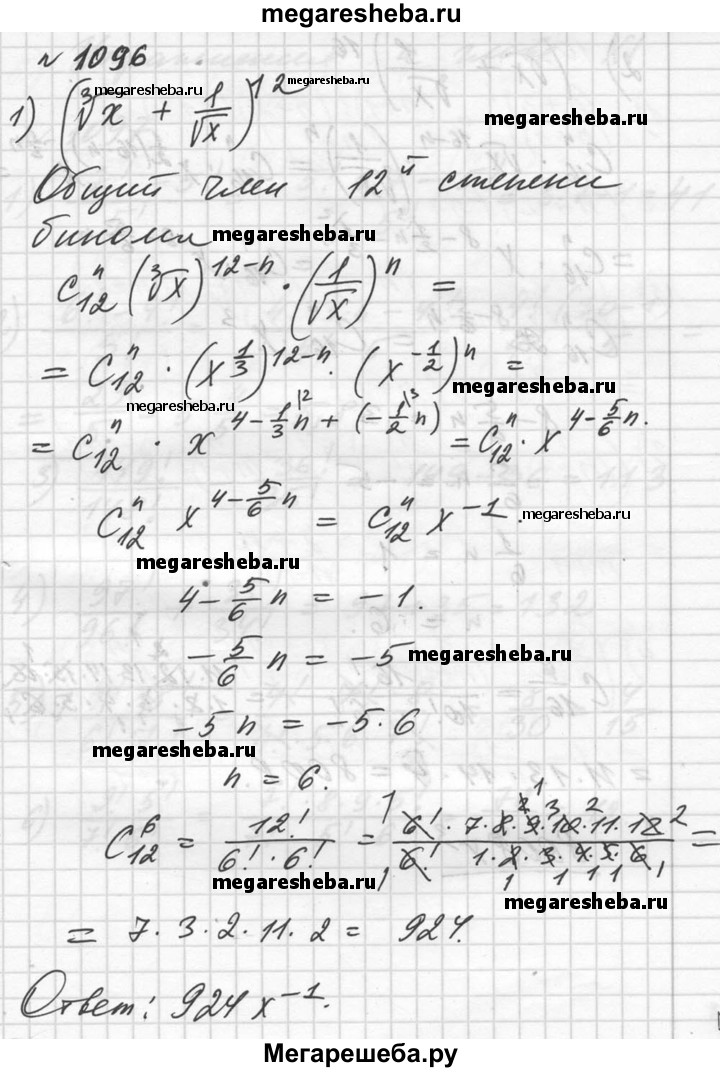 megaresheba.ru
№ 1096
1) (∛x + 1/√x)^12
megaresheba.ru megaresheba.ru
megaresheba.ru
Общий член 12й степени
бинома megaresheba.ru
C_12^n (∛x)^(12-n) · (1/√x)^n =
= C_12^n · (x^(1/3))^(12-n) · (x^(-1/2))^n =
megaresheba.ru megaresheba.ru
= C_12^n · x^(4 - 1/3 n + (-1/2 n)) = C_12^n · x^(4 - 5/6 n).
C_12^n x^(4 - 5/6 n) = C_12^n x^(-1).
megaresheba.ru
megaresheba.ru
4 - 5/6 n = -1.
-5/6 n = -5
megaresheba.ru
-5n = -5·6
megaresheba.ru
n = 6.
C_12^6 = 12!/(6!·6!) = (6!·7·8·9·10·11·12)/(6! 1·2·3·4·5·6) =
megaresheba.ru
megaresheba.ru
= 7·3·2·11·2 = 924.
Ответ: 924 x^(-1).
Мегарешеба.ру